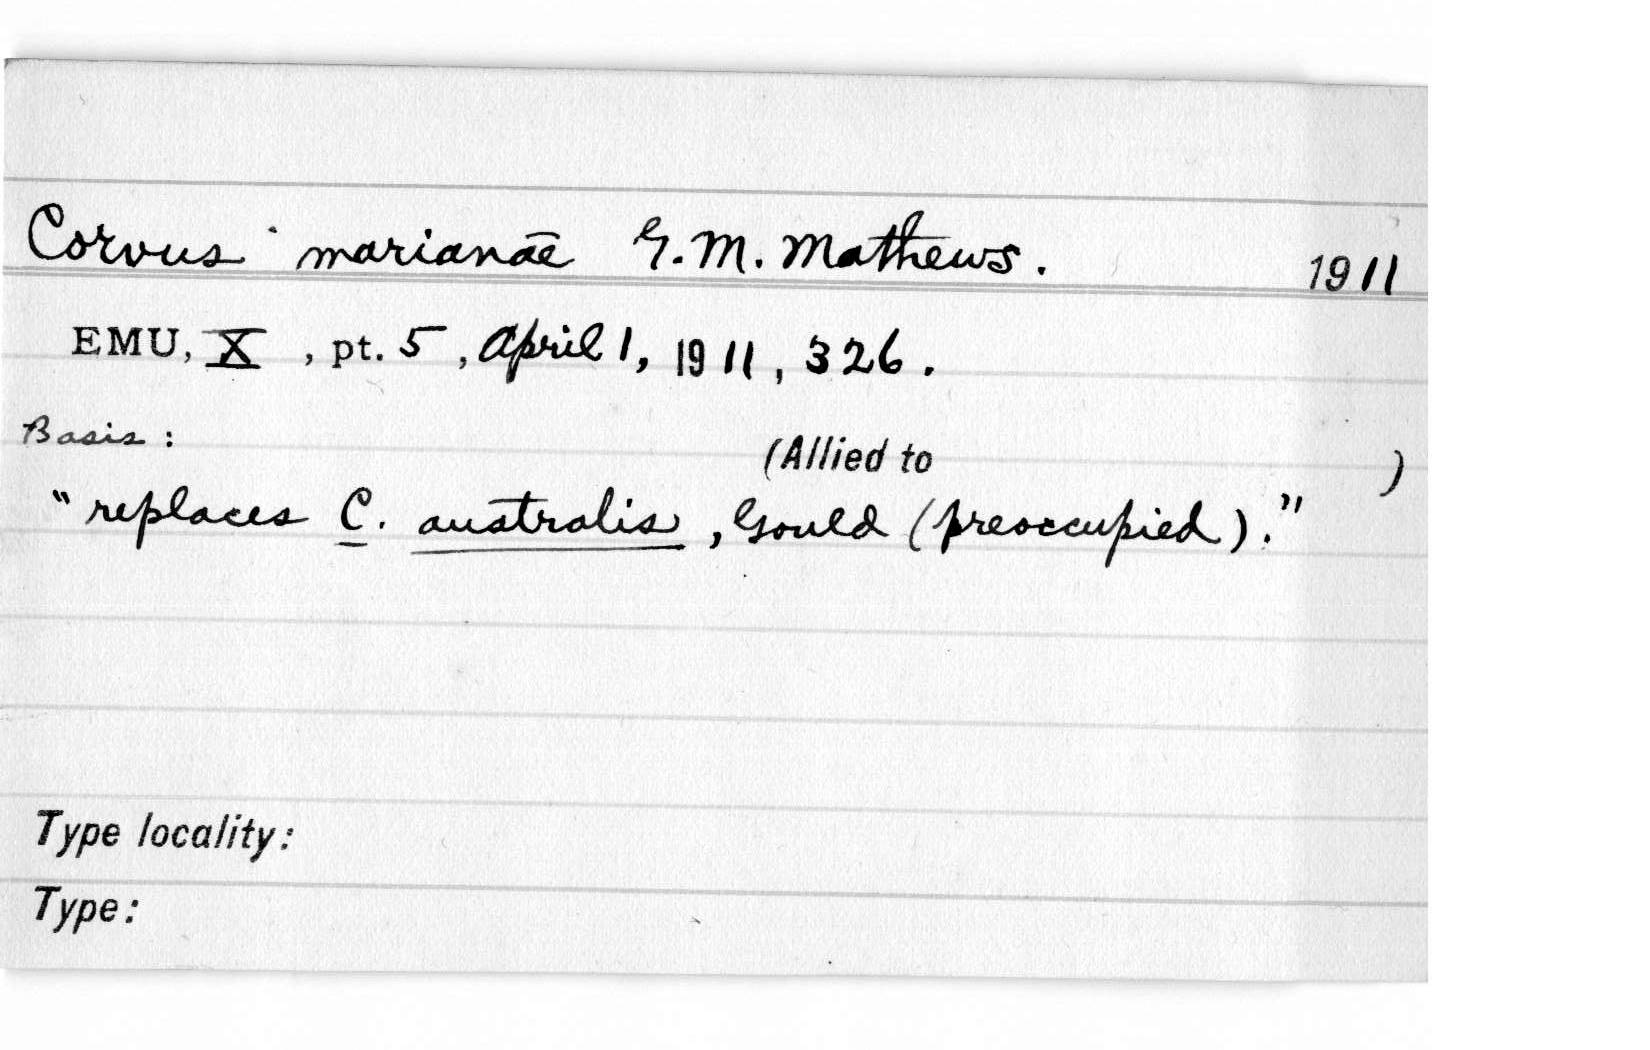 Corvus marianae G. M. Mathews. 1911
EMU, X, pt. 5, April 1, 1911, 326.
Basis:
(Allied to )
"replaces C. australis, Gould (preoccupied)."
Type locality:
Type: